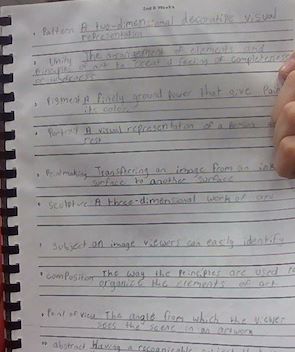 2nd 9 Weeks
• Pattern A two-dimensional decorative visual
representation
• Unity The arrangement of elements and
Principles of art to creat a feeling of completeness
or wholeness
• Pigment A finely ground power that give Pain
its colour
• Portrait A visual representation of a Person
rest
• Printmaking Transfering an image from an ink
surface to another surface
• Sculpture A three-dimensional work of art
• Subject an image viewers can easily identify
• Composition The way the Principles are used to
organize the elements of art
• Point of view The angle from which the viewer
sees the scene in an artwork
• abstract Having a recognizable